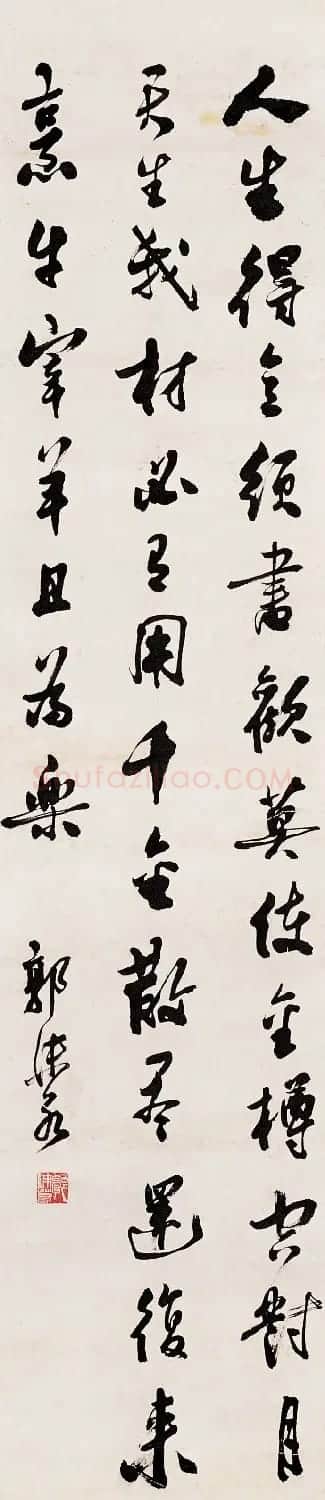 人生得意須盡歡莫使金樽空對月
天生我材必有用千金散尽還復来
烹牛宰羊且為樂
郭沫若